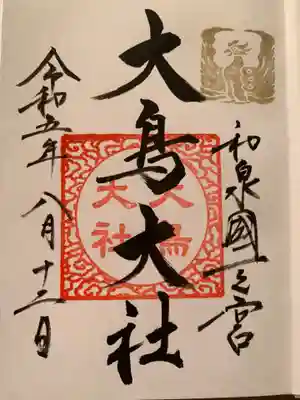 和泉國一之宮
大鳥大社
大鳥
大社
令和五年 八月十三日